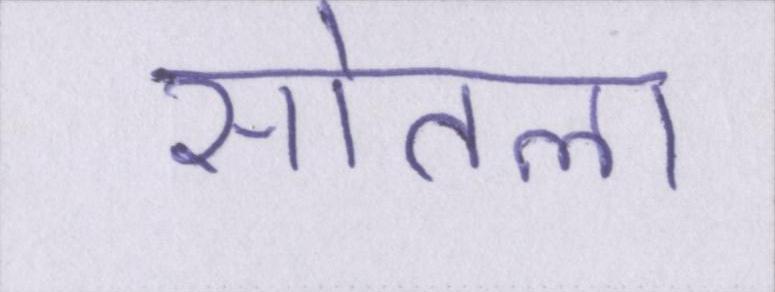 सोतला